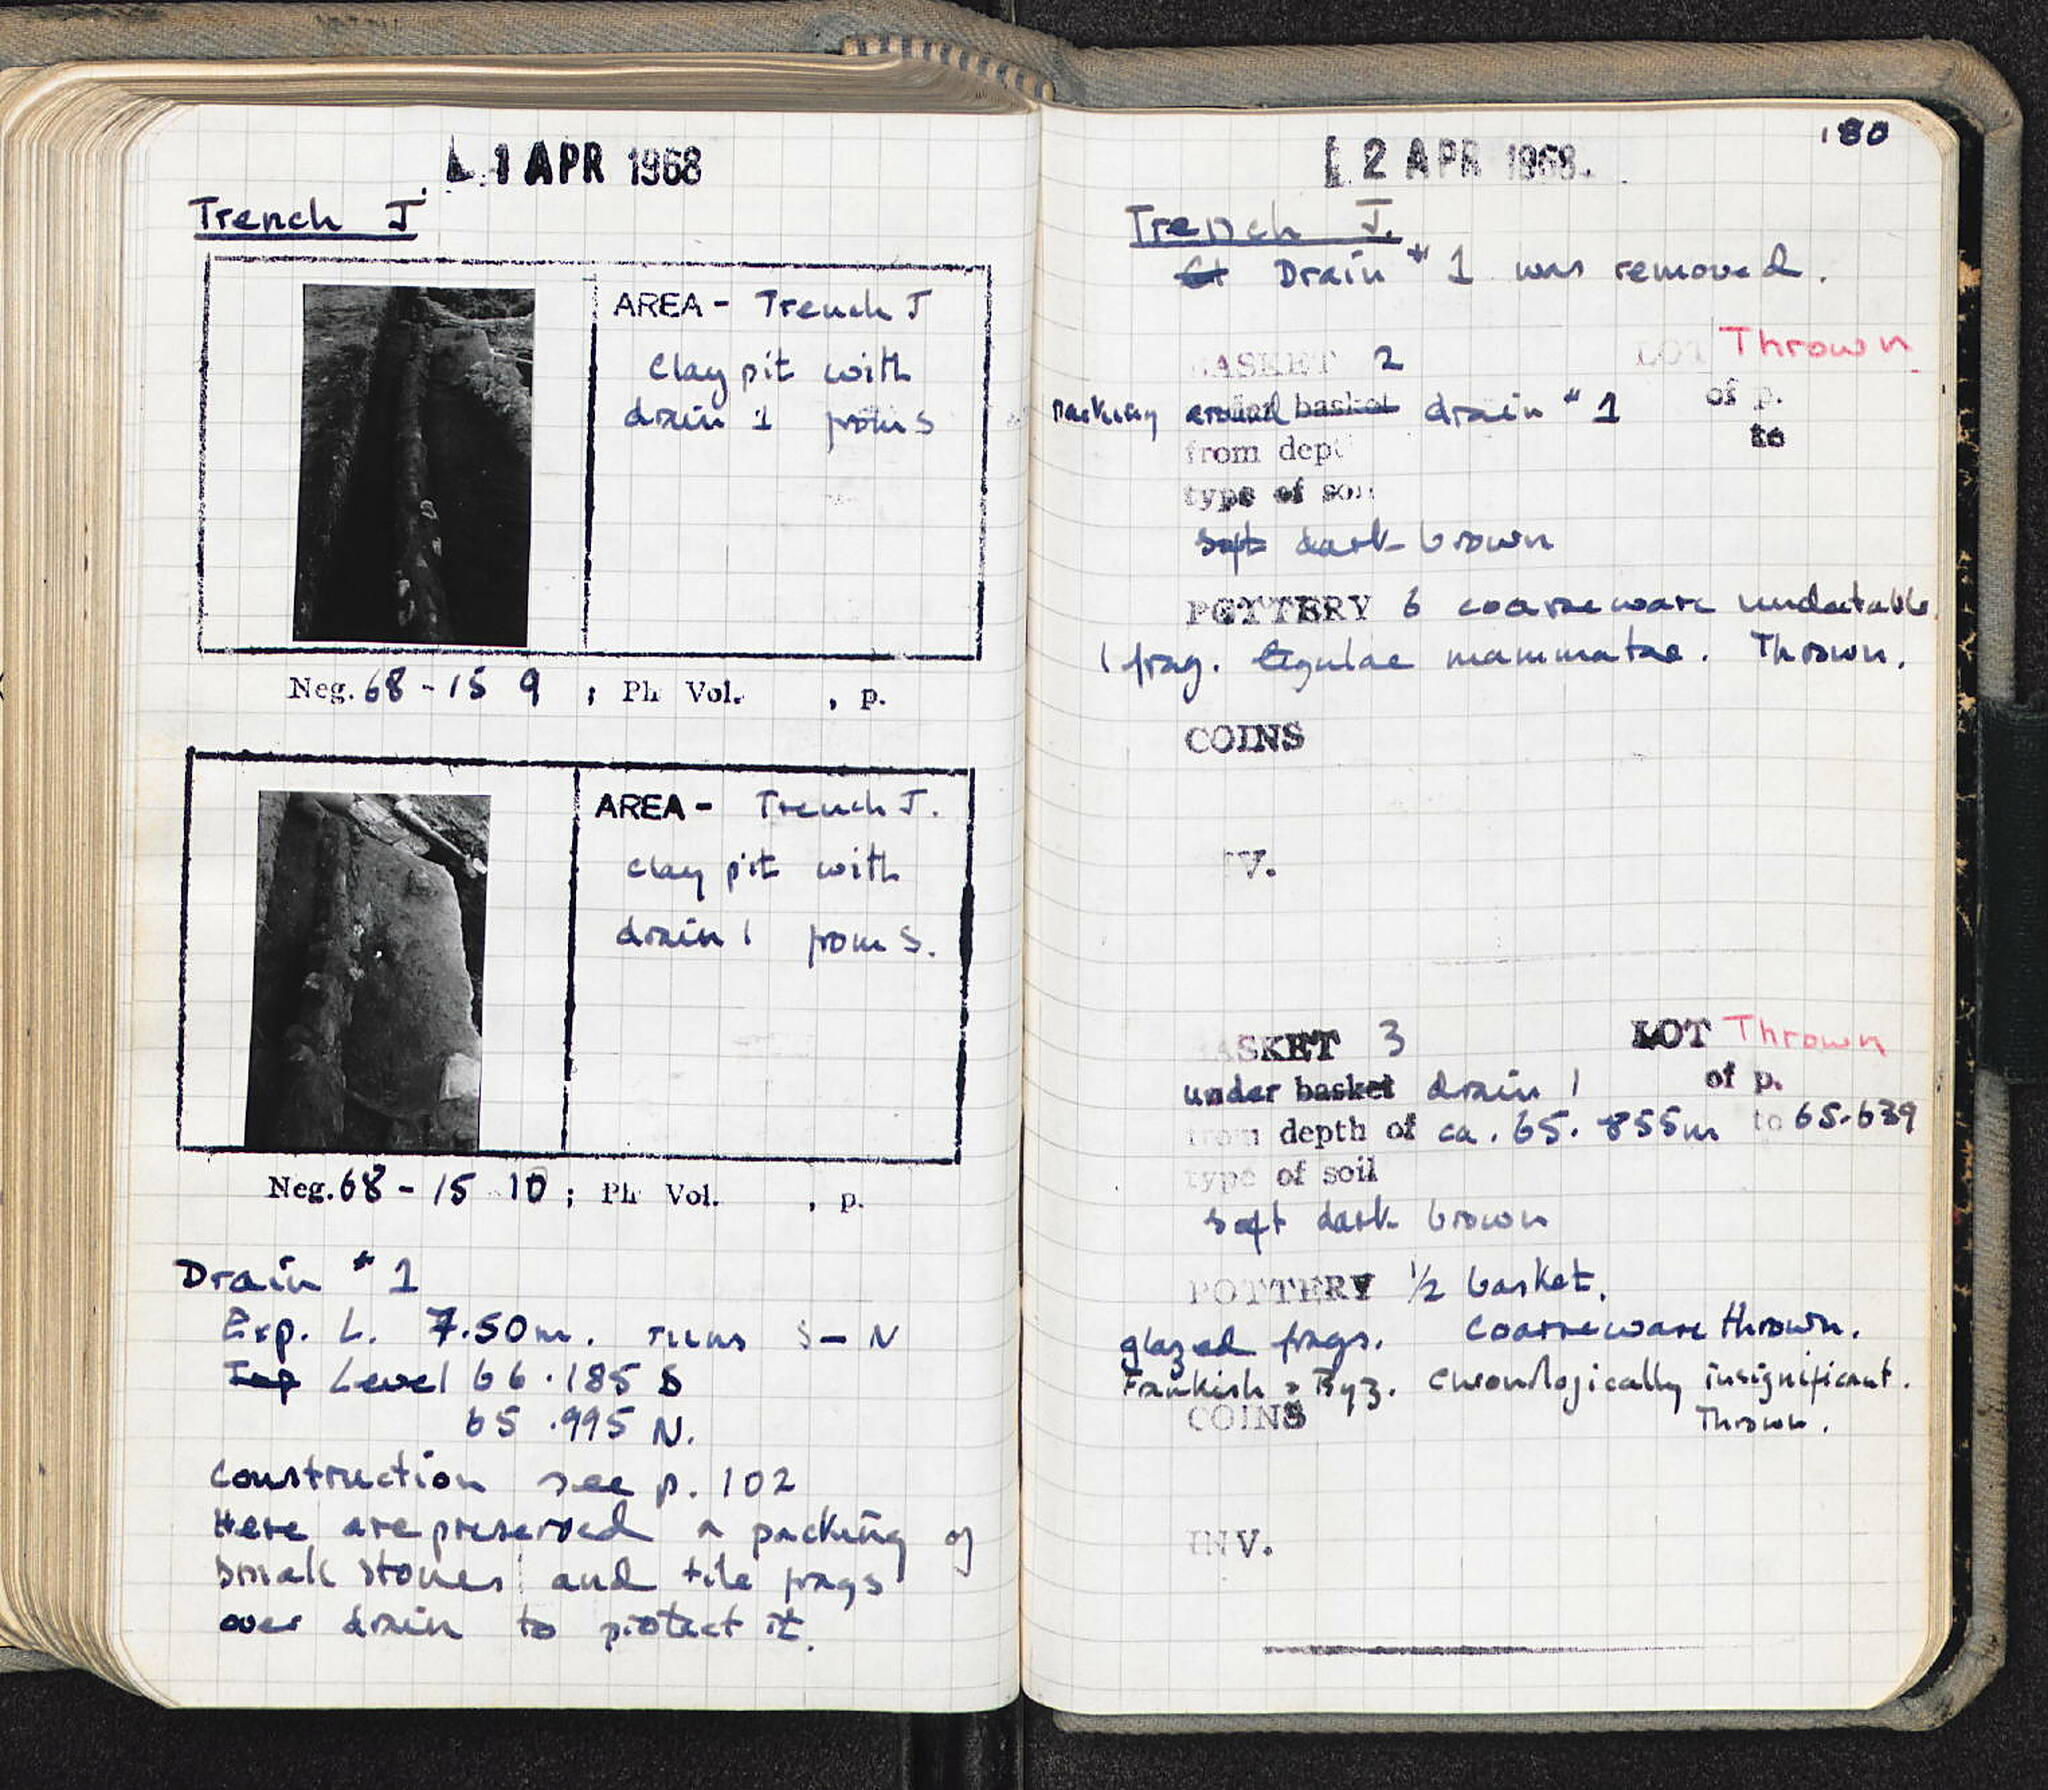 1 APR 1968
Trench J
AREA - Trench J
Clay pit with
drain 1 from S
Neg. 68 - 15 9 ; Ph Vol. , p.
AREA - Trench J.
Clay pit with
drain 1 from S.
Neg. 68 - 15 10 ; Ph Vol. , p.
Drain # 1
Exp. L. 7.50m. runs S - N
Level 66.185 S
65.995 N.
Construction see p. 102
Here are preserved a packing of
small stones and tile frags
over drain to protect it.
180
2 APR 1968.
Trench J.
Drain # 1 was removed.
BASKET 2 LOT Thrown
packing around basket drain # 1 of p.
from dept to
type of soil
soft dark brown
POTTERY 6 coarseware undatable.
1 frag. tegulae mammatae. Thrown.
COINS
V.
BASKET 3 LOT Thrown
under basket drain 1 of p.
from depth of ca. 65.855m to 65.639
type of soil
soft dark brown
POTTERY 1/2 basket.
glazed frags. Coarseware thrown.
Frankish & Byz. Chronologically insignificant.
Thrown.
COINS
INV.